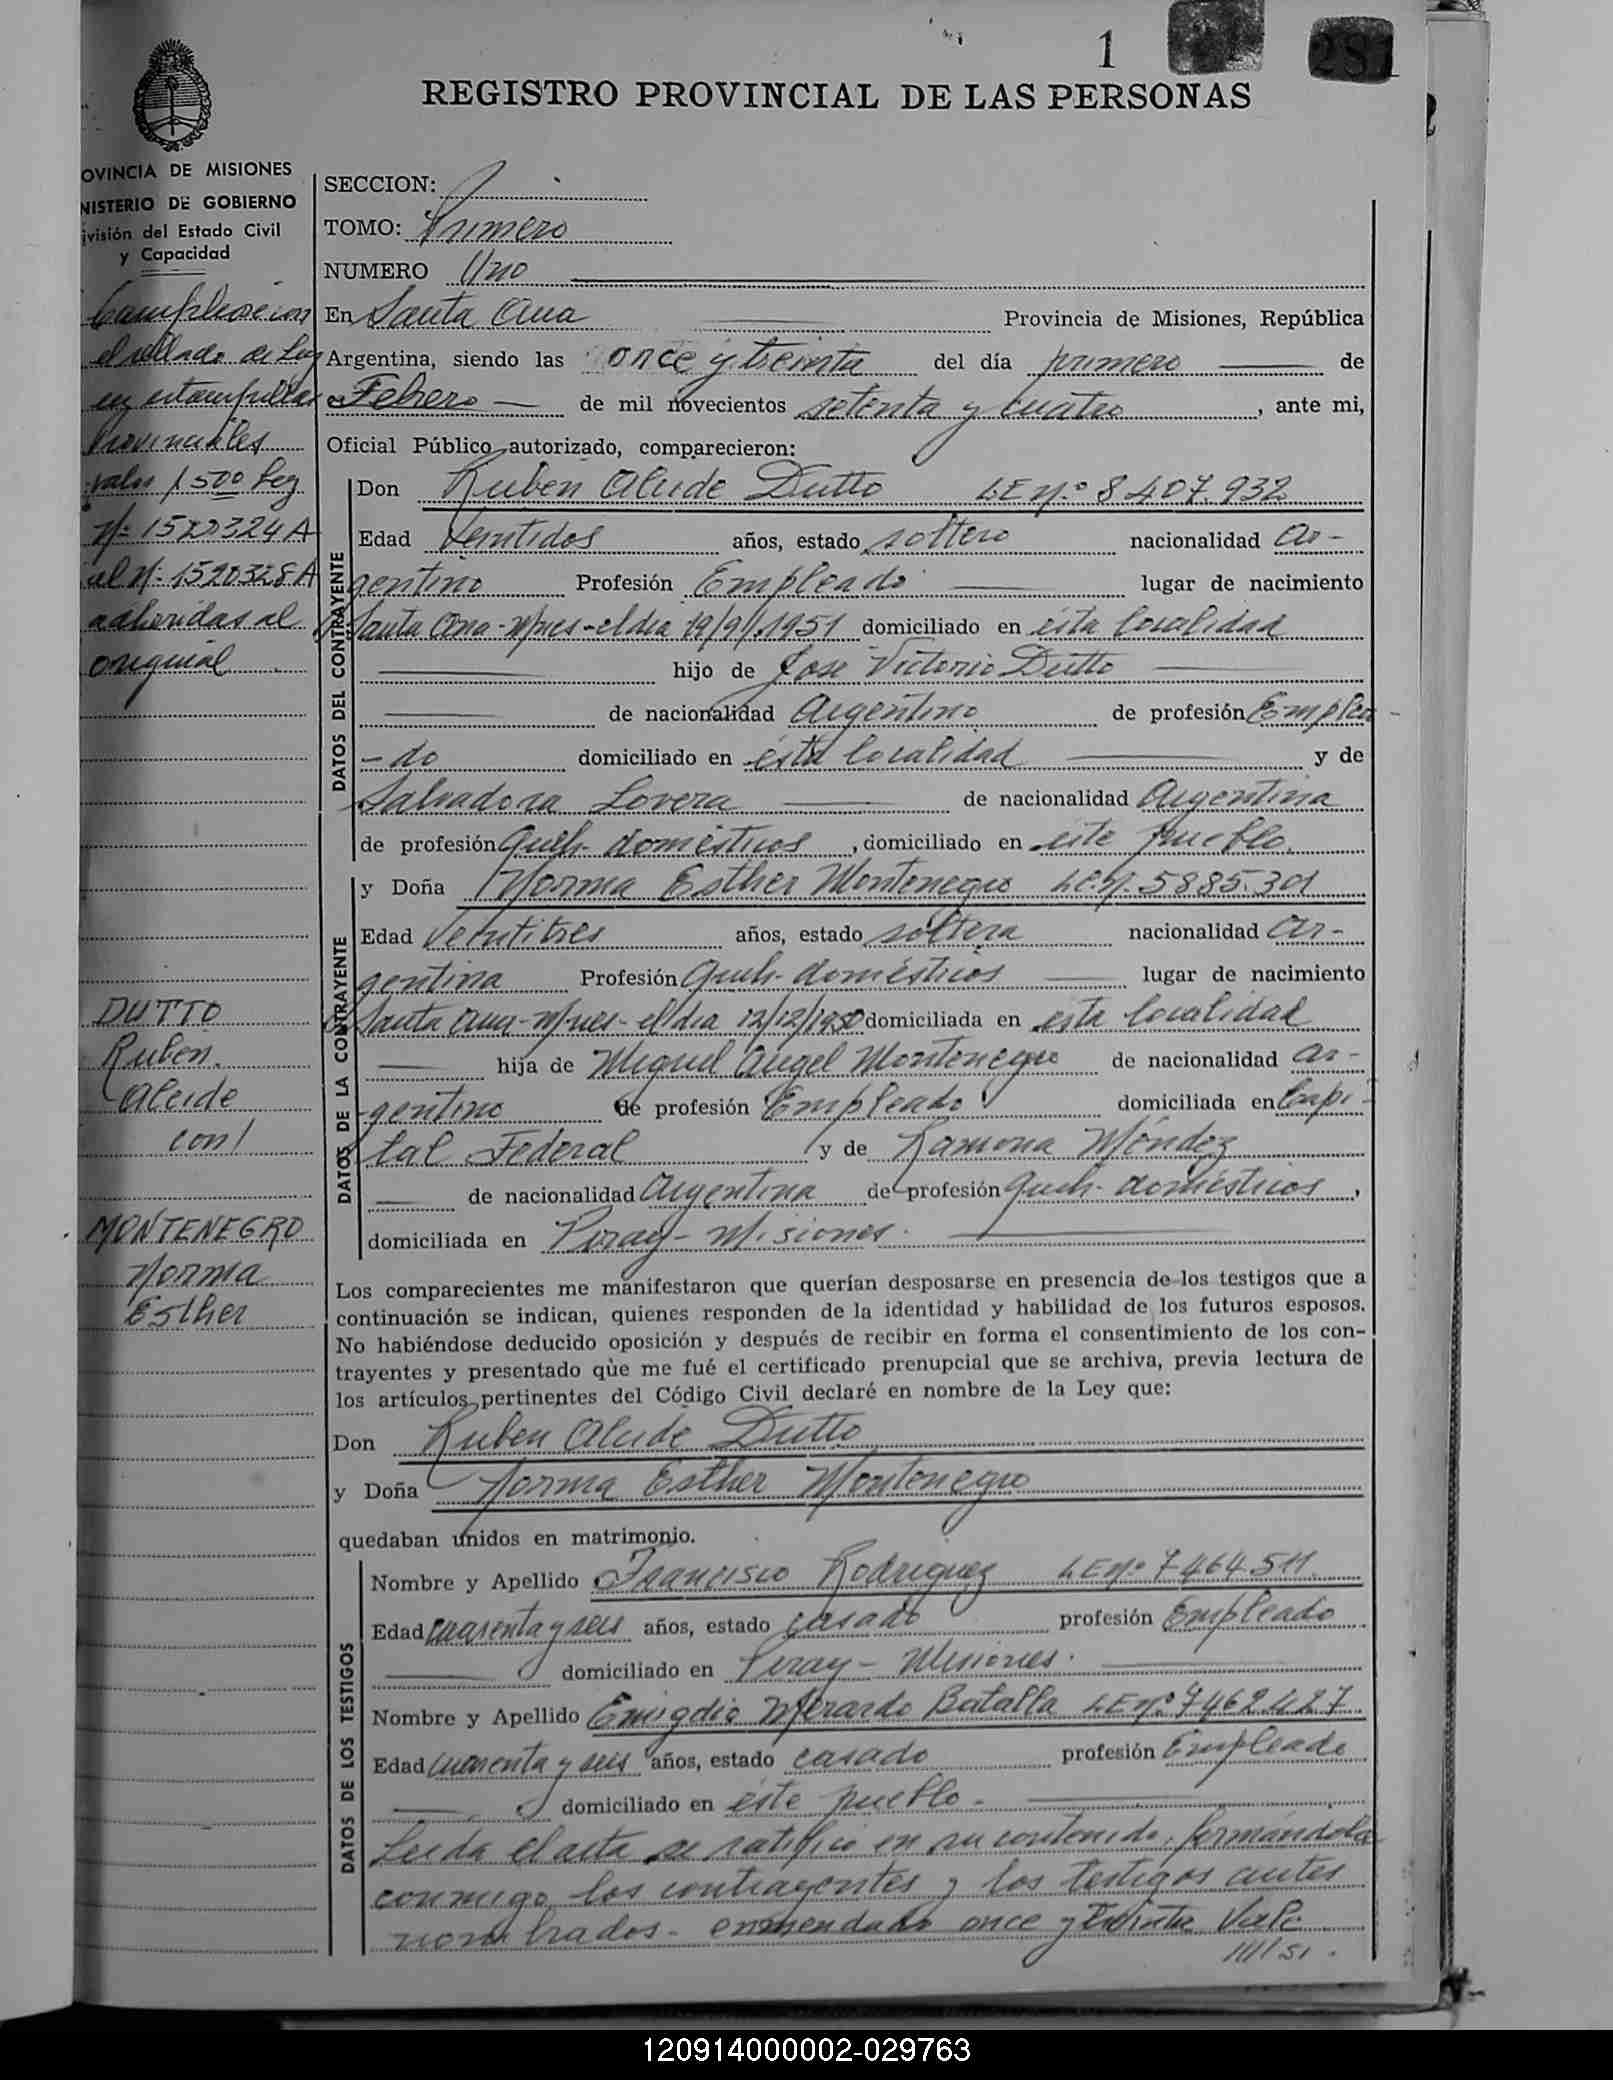 1
281
REGISTRO PROVINCIAL DE LAS PERSONAS
OVINCIA DE MISIONES
NISTERIO DE GOBIERNO
ivisión del Estado Civil
y Capacidad
el sellado de Ley
en estampillas
Provinciales
valor 1500 Ley
Nº 1520324 A
al Nº 1520328 A
adheridas al
original
DUTTO
Ruben
Alcide
con/
MONTENEGRO
Norma
Esther
SECCION:
TOMO: Primero
NUMERO Uno
En Santa Ana Provincia de Misiones, República
Argentina, siendo las once y treinta del día primero de
Febrero de mil novecientos setenta y cuatro, ante mi,
Oficial Público autorizado, comparecieron:
DATOS DEL CONTRAYENTE
Don Ruben Alcide Dutto LE nº 8407.932
Edad Veintidos años, estado soltero nacionalidad Ar-
gentino Profesión Empleado lugar de nacimiento
Santa Ana-Mnes-el dia 19/9/1951 domiciliado en esta localidad
hijo de Jose Victorio Dutto
de nacionalidad Argentino de profesión Emplea-
-do domiciliado en esta localidad y de
Salvadora Lovera de nacionalidad Argentina
de profesión Queh. domésticos, domiciliado en este pueblo.
DATOS DE LA CONTRAYENTE
y Doña Norma Esther Montenegro LC.Nº. 5885.301
Edad Veintitres años, estado soltera nacionalidad Ar-
gentina Profesión Queh. domésticos lugar de nacimiento
Santa Ana-Mnes-el dia 12/12/1950 domiciliada en esta localidad
hija de Miguel Angel Montenegro de nacionalidad Ar-
-gentino de profesión Empleado domiciliada en Capi-
tal Federal y de Ramona Méndez
de nacionalidad Argentina de profesión Queh. domésticos,
domiciliada en Piray-Misiones.
Los comparecientes me manifestaron que querían desposarse en presencia de los testigos que a
continuación se indican, quienes responden de la identidad y habilidad de los futuros esposos.
No habiéndose deducido oposición y después de recibir en forma el consentimiento de los con-
trayentes y presentado que me fué el certificado prenupcial que se archiva, previa lectura de
los artículos pertinentes del Código Civil declaré en nombre de la Ley que:
Don Ruben Alcide Dutto
y Doña Norma Esther Montenegro
quedaban unidos en matrimonio.
DATOS DE LOS TESTIGOS
Nombre y Apellido Francisco Rodriguez LE nº 7464.511
Edad cuarenta y seis años, estado casado profesión Empleado
domiciliado en Piray-Misiones.
Nombre y Apellido Emigdio Merardo Batalla LE nº 7462.427
Edad cuarenta y seis años, estado casado profesión Empleado
domiciliado en éste pueblo.
Leída el acta se ratificó en su contenido, firmándola
conmigo los contrayentes y los testigos antes
nombrados. enmendado once y treinta Vale.
120914000002-029763